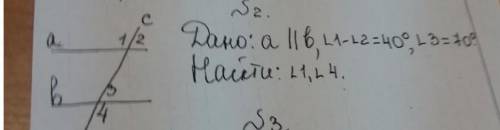 S2.
c
a 1 2
Дано: a || b, ∠1-∠2=40°, ∠3=70°
Найти: ∠1, ∠4.
b 3
4
S3.